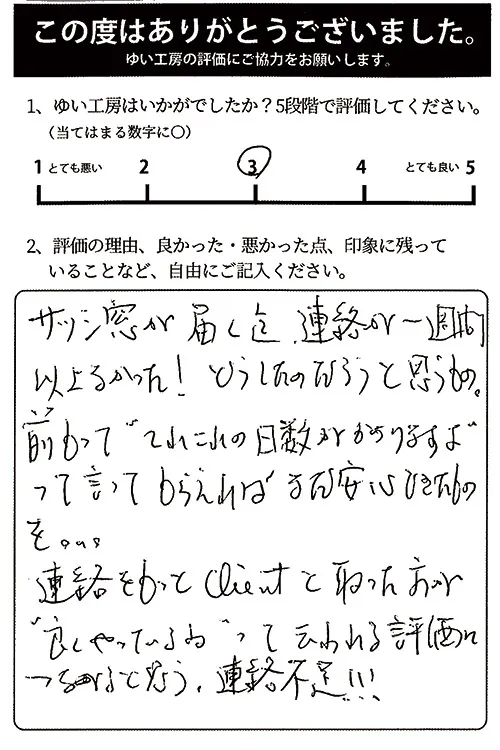 この度はありがとうございました。
ゆい工房の評価にご協力をお願いします。
1、ゆい工房はいかがでしたか？5段階で評価してください。
（当てはまる数字に〇）
1 とても悪い 2 3 4 とても良い 5
2、評価の理由、良かった・悪かった点、印象に残って
いることなど、自由にご記入ください。
サッシ窓が届く迄、連絡が一週間
以上なかった！どうしたのだろうと思うもの。
前もって"これこれの日数がかかりますよ"
って言ってもらえればまだ安心できたもの
を。。。
連絡をもっとClientと取った方が
"良くやっているね"って云われる評価に
つながると思う。連絡不足!!!